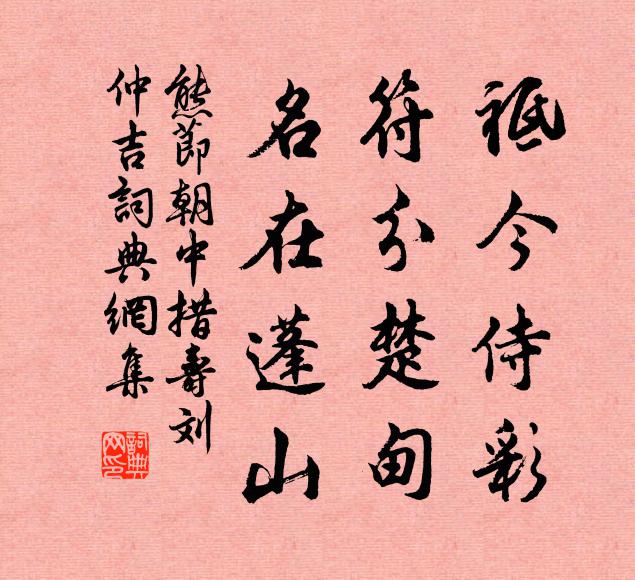 祗今侍彩
符分楚甸
名在蓬山
熊節朝中措壽刘
仲吉詞典網集
詞典网印